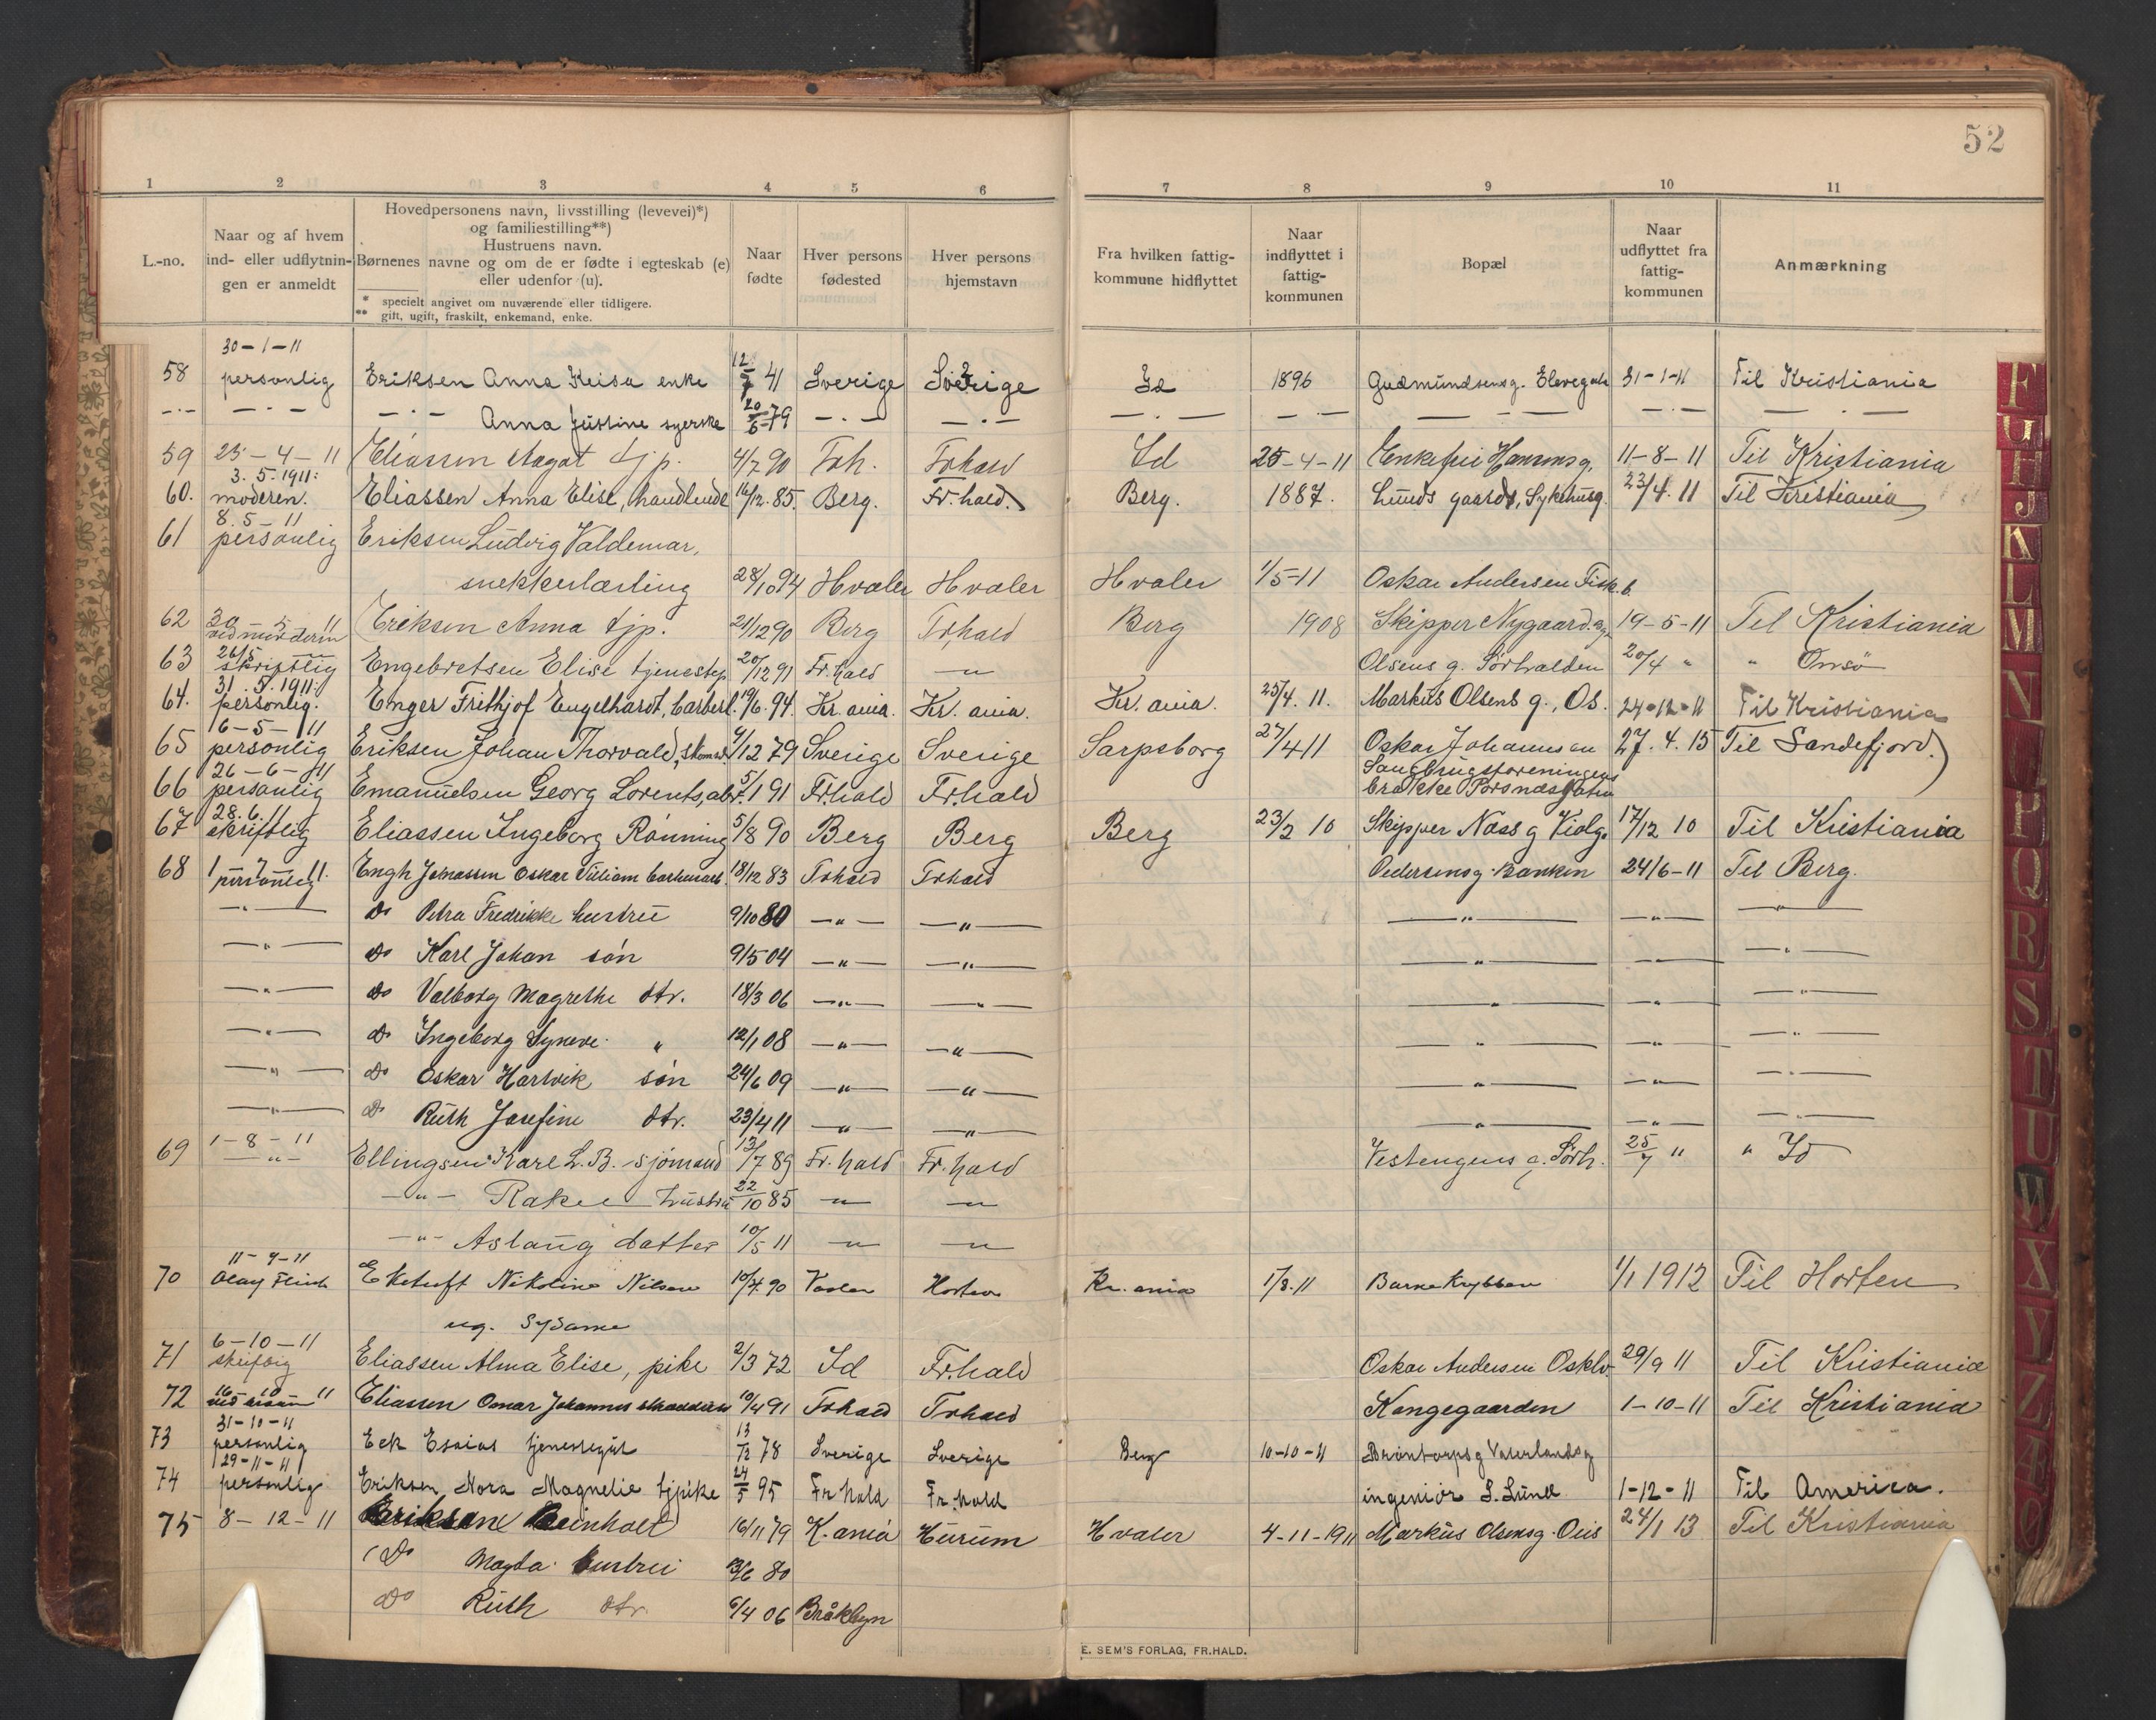 52
1 2 3 4 5 6 7 8 9 10 11
L.-no.
Naar og af hvem
ind- eller udflytnin-
gen er anmeldt
Hovedpersonens navn, livsstilling (levevei)*)
og familiestilling**)
Hustruens navn.
Børnenes navne og om de er fødte i egteskab (e)
eller udenfor (u).
* specielt angivet om nuværende eller tidligere.
** gift, ugift, fraskilt, enkemand, enke.
Naar
fødte
Hver persons
fødested
Hver persons
hjemstavn
Fra hvilken fattig-
kommune hidflyttet
Naar
indflyttet i
fattig-
kommunen
Bopæl
Naar
udflyttet fra
fattig-
kommunen
Anmærkning
30-1-11
58 personlig Eriksen Anna Keisa enke 12/7 41 Sverige Sverige Id 1896 Gudmundsensg. 31-1-11 Til Kristiania
—·— —·— —·— Anna Justine syerske 20/6 79 —·— —·— —·— —·— —·— —·— —·—
59 25-4-11 Eliassen Aagot tjp. 4/7 90 Frh. Frhald Id 25-4-11 Enkefru Hansensg. 11-8-11 Til Kristiania
3.5.1911:
60. moderen. Eliassen Anna Elise, handlende 16/12. 85. Berg. Fr.hald. Berg. 1887. Lunds gaard, Sykehusg. 23/4. 11 Til Kristiania
8.5-11
61 personlig Eriksen Ludvig Valdemar,
snekkerlærling 28/10 94 Hvaler Hvaler Hvaler 1/5-11 Oskar Andersen Fisk.b.
62 30-5-11 Eriksen Anna tjp. 21/12 90 Berg Frhald Berg 1908 Skipper Nygaardsg 19-5-11 Til Kristiania
ved moderen
26/5
63 skriftlig Engebretsen Elise tjenestep 20/12 91 Fr.hald —"— Olsens g. Sørhalden 20/4 " " Onsø
31.5.1911:
64. personlig. Enger Frithjof Engelhardt, barberl. 19/6. 94. Kr.ania. Kr.ania. Kr.ania. 25/4. 11. Markus Olsens g., Os. 24-12-11 Til Kristiania
16-5-11
65 personlig Eriksen Johan Thorvald, skomak. 4/12 79 Sverige Sverige Sarpsborg 27/4 11 Oskar Johannsen 27.4.15 Til Sandefjord.)
26-6-11
66 personlig Emanuelsen Georg Lorents, arb. 5/1 91 Fr.hald Fr.hald Saugbrugsforeningens
brakke Porsnæsgaten
28.6.11
67 skriftlig Eliassen Ingeborg Rønning 5/8 90 Berg Berg Berg 23/2 10 Skipper Næss g Violg. 17/12 10 Til Kristiania
68 1-7-11. Engh Jonassen Oskar Julian 18/12 83 Frhald Frhald Pedersensg. Banken 24/6-11 Til Berg.
personlig
—"— Do Petra Fredrikke hustru 9/10 80 —"— —"— —"— —"— —"—
—"— Do Karl Johan søn 9/5 04 —"— —"— —"— —"— —"—
—"— Do Valborg Magrethe dtr. 18/3 06 —"— —"— —"— —"— —"—
—"— Do Ingeborg Synøve " 12/1 08 —"— —"— —"— —"— —"—
—"— Do Oskar Hartvik søn 24/6 09 —"— —"— —"— —"— —"—
—"— Do Ruth Josefine dtr. 23/4 11 —"— —"— —"— —"— —"—
69 1-8-11 Ellingsen Karl L.B. sjømand 13/7 89 Fr.hald Fr.hald Vestengens g. Sørh. 25/7 " " Id
—"—
—"— Rakel hustru 22/10 85 —"— —"—
—"— Aslaug datter 10/5 11 —"— —"—
11-9-11
70 Olay Flink Eketuft Nikoline Nilsen 10/4. 90 Vaaler Horten Kr.ania 1/8.11 Barnekrybben 1/1 1912 Til Horten
ug. Sydame
6-10-11
71 skriftlig Eliassen Alma Elise, pike 2/3 72 Id Fr.hald Oskar Andersen Osklv. 29/9 11 Til Kristiania
72 16-10-11 Eliassen Omar Johannes 10/4 91 Frhald Frhald Kongegaarden 1-10-11 Til Kristiania
31-10-11
73 personlig Eek Esaias tjenestegut 13/12 78 Sverige Sverige Berg 10-10-11 Brøntorpsg Vaterlandsg
29-11-11
74 personlig Eriksen, Nora Magnelie tjpike 24/5 95 Fr.hald Fr.hald ingeniør S. Lund 1-12-11 Til America.
75 8-12-11 Eriksen Reinholt 16/11 79 K.ania Hurum Hvaler 4-11-1911 Markus Olsensg. Ous 24/1 13 Til Kristiania
Do Magda hustru 3/6 80
Do Ruth dtr. 6/4 06 Bråkbyn
E. SEM'S FORLAG, FR.HALD.
F G H J K L M N P Q R S T U W X Y Z Æ Ø